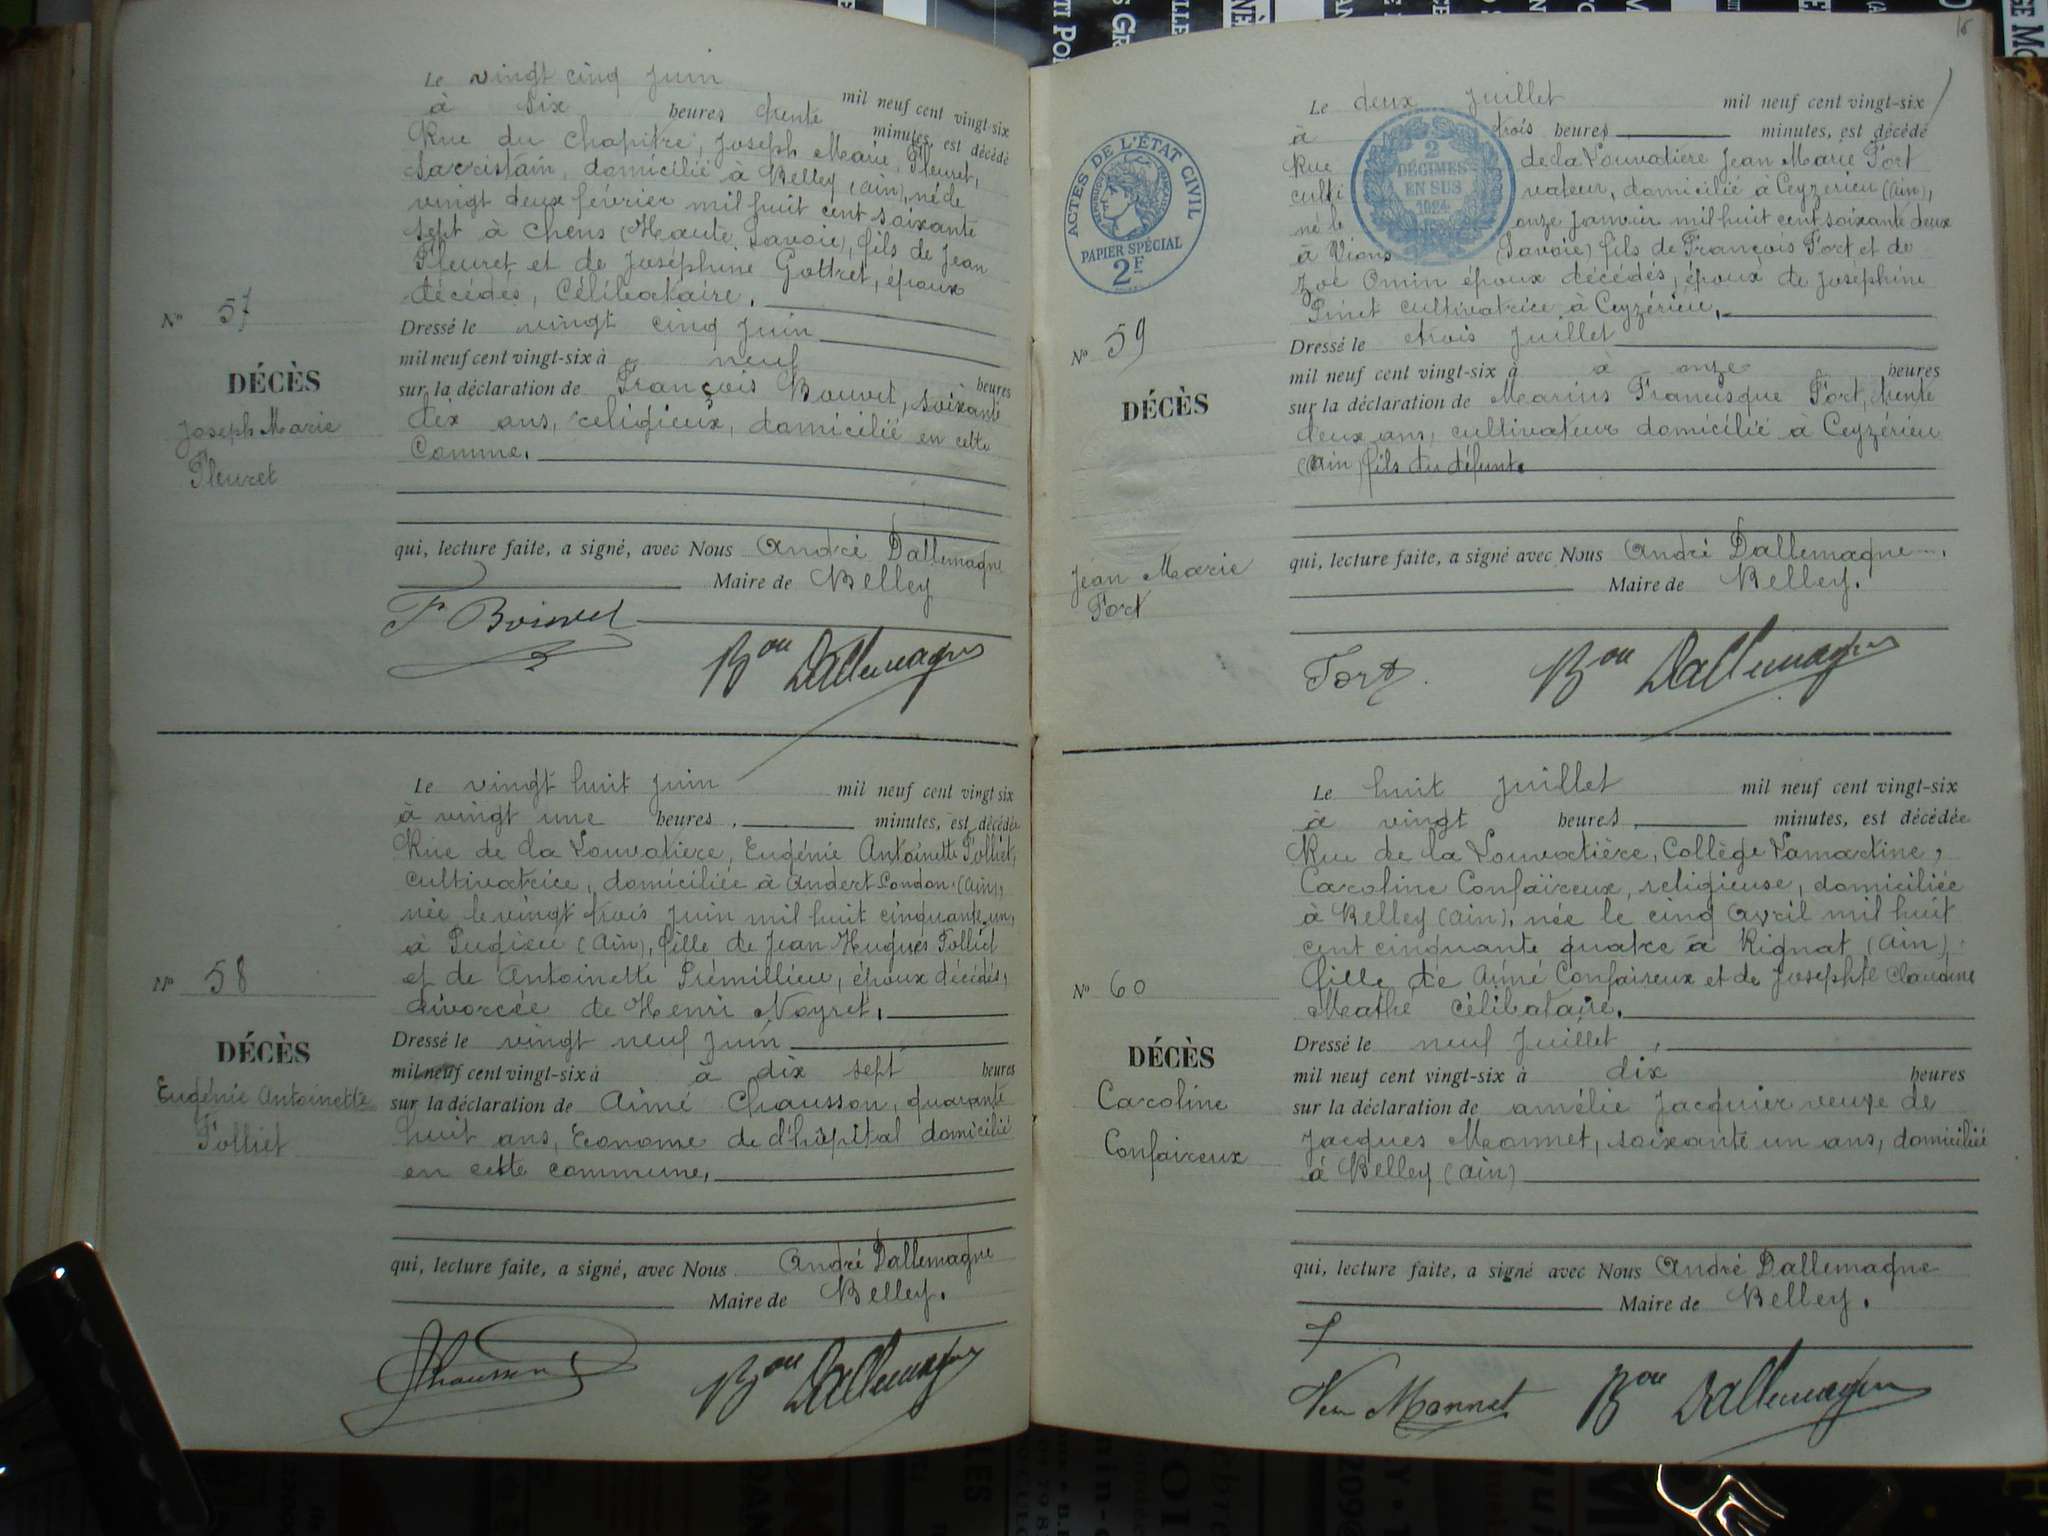 Le vingt cinq juin mil neuf cent vingt-six
à six heures trente minutes, est décédé
Rue du Chapitre, Joseph Marie Fleuret,
sacristain, domicilié à Belley (Ain), né le
vingt deux février mil huit cent soixante
sept à Chens (Haute Savoie), fils de Jean
Fleuret et de Joséphine Gottret, époux
décédés, Célibataire.
Nº 57
DÉCÈS
Joseph Marie
Fleuret
Dressé le vingt cinq juin
mil neuf cent vingt-six à neuf heures
sur la déclaration de François Bouvet, soixante
dix ans, religieux, domicilié en cette
Comme.
qui, lecture faite, a signé, avec Nous André Dallemagne
Maire de Belley
F Bouvet
Bon Dallemagne
Le vingt huit juin mil neuf cent vingt six
à vingt une heures, minutes, est décédée
Rue de la Louvatière, Eugénie Antoinette Folliet,
cultivatrice, domiciliée à Andert Condon (Ain),
née le vingt trois juin mil huit cinquante un,
à Pugieu (Ain), fille de Jean Hugues Folliet
et de Antoinette Prémillieu, époux décédés,
divorcée de Henri Neyret.
Nº 58
DÉCÈS
Eugénie Antoinette
Folliet
Dressé le vingt neuf juin
mil neuf cent vingt-six à à dix sept heures
sur la déclaration de Aimé Chausson, quarante
huit ans, Econome de d'hôpital domicilié
en cette commune.
qui, lecture faite, a signé, avec Nous André Dallemagne
Maire de Belley.
Chausson
Bon Dallemagne
18
Le deux juillet mil neuf cent vingt-six
à trois heures minutes, est décédé
Rue de la Louvatière Jean Marie Fort
culti vateur, domicilié à Ceyzérieu (Ain),
né le onze janvier mil huit cent soixante deux
à Vions (Savoie) fils de François Fort et de
Zoé Omin époux décédés, époux de Joséphine
Pinet cultivatrice à Ceyzérieu.
ACTES DE L'ÉTAT CIVIL
RÉPUBLIQUE FRANÇAISE
PAPIER SPÉCIAL
2F
2
DÉCIMES
EN SUS
1924
Nº 59
DÉCÈS
Jean Marie
Fort
Dressé le trois juillet
mil neuf cent vingt-six à à onze heures
sur la déclaration de Marius Francisque Fort, trente
deux ans, cultivateur domicilié à Ceyzérieu
(Ain) fils du défunt.
qui, lecture faite, a signé avec Nous André Dallemagne
Maire de Belley.
Fort
Bon Dallemagne
Le huit juillet mil neuf cent vingt-six
à vingt heures, minutes, est décédée
Rue de la Louvatière, Collège Lamartine,
Caroline Confaireux, religieuse, domiciliée
à Belley (Ain), née le cinq Avril mil huit
cent cinquante quatre à Rignat (Ain)
fille de Aimé Confaireux et de Josephte Claudine
Mathé célibataire.
Nº 60
DÉCÈS
Caroline
Confaireux
Dressé le neuf juillet,
mil neuf cent vingt-six à dix heures
sur la déclaration de Amélie Jacquier veuve de
Jacques Monnet, soixante un ans, domiciliée
à Belley (Ain)
qui, lecture faite, a signé avec Nous André Dallemagne
Maire de Belley.
Veuve Monnet
Bon Dallemagne